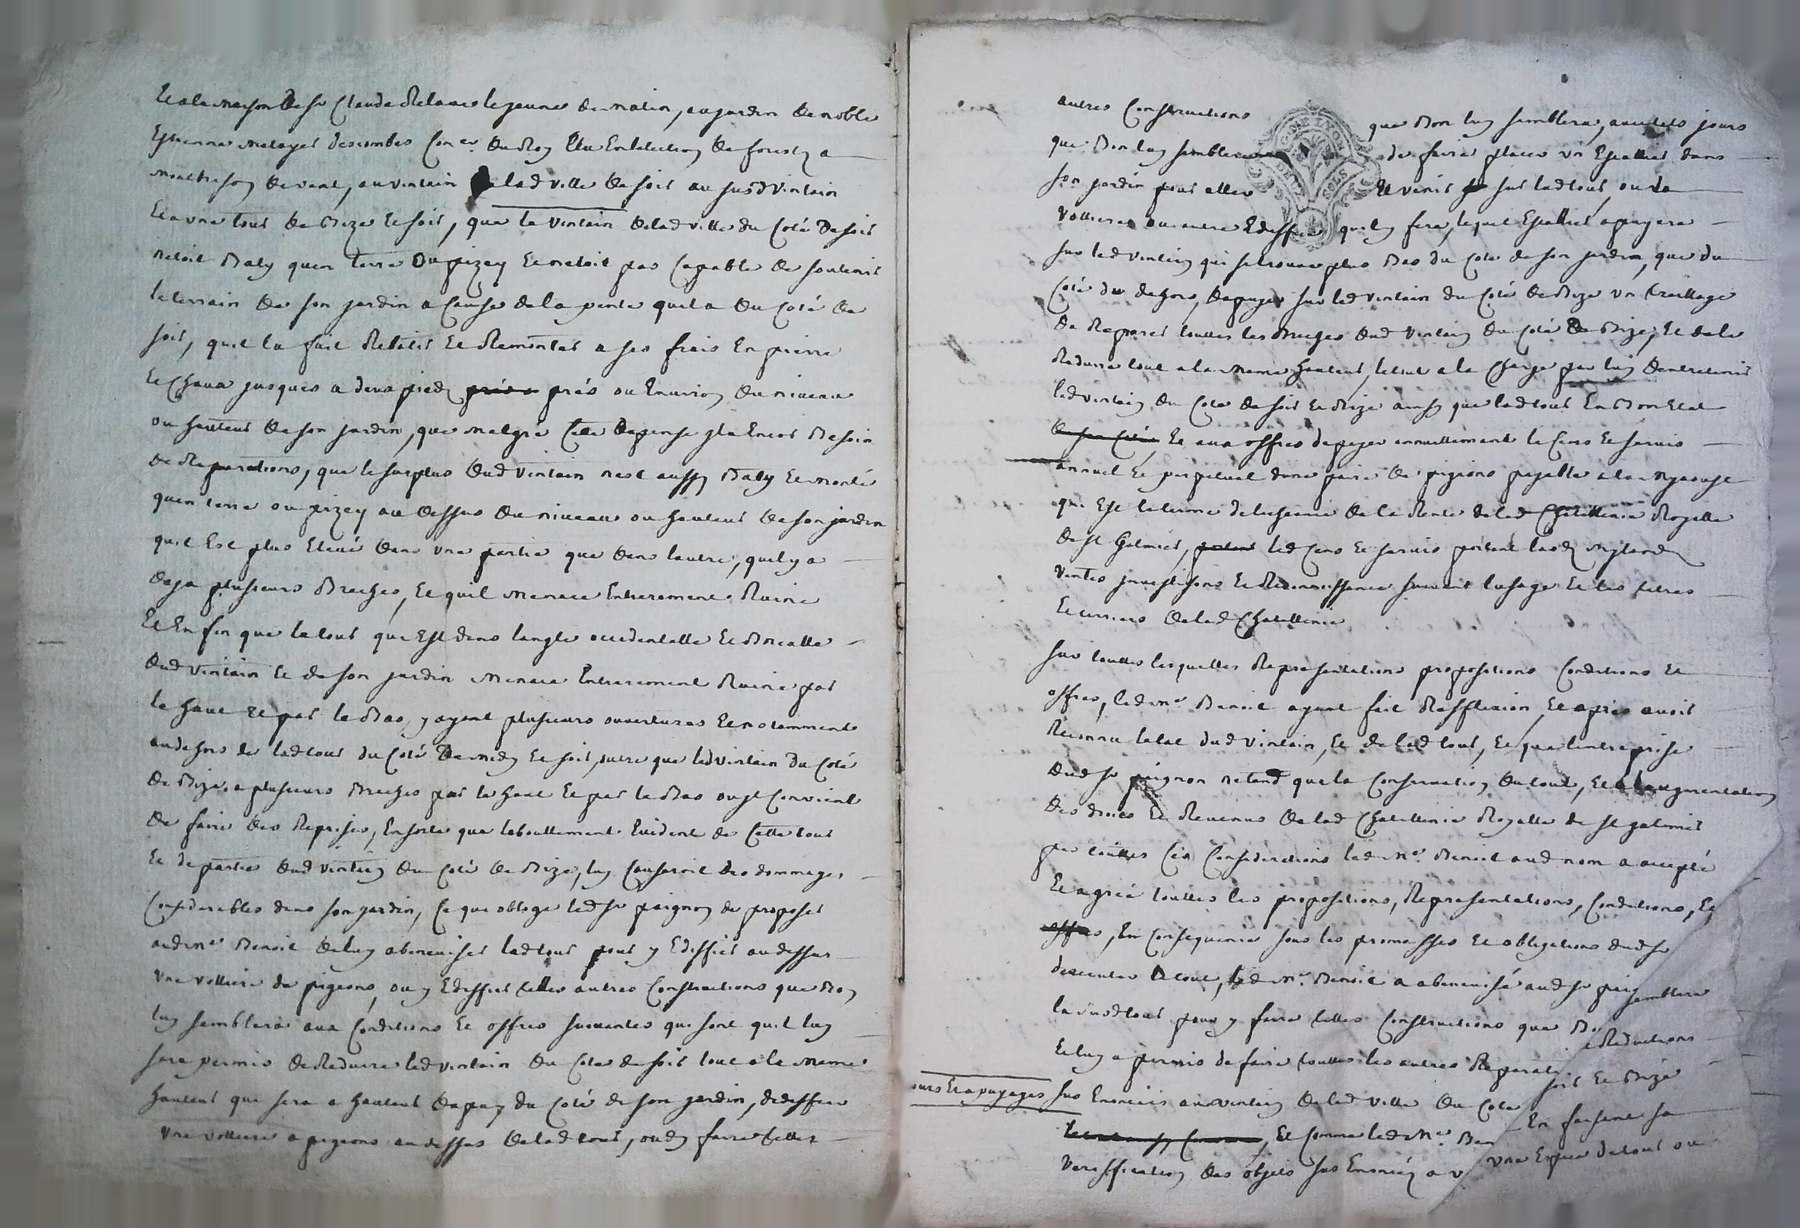 Et a la maison de sr Claude Relave le jeune de matin, au jardin de noble
Estienne Metayer descombes Con.er du Roy En l'Eslection de forestz a
montbrison de vent, au vintain de lad ville de soir au susd vintain
Et a une tour de Bize Et soir, que le vintain de lad ville du Coté de soir
netoit Baty quen terre ou pizey Et netoit pas Capable de soutenir
le terrain de son jardin a Cause de la pente quil a du Coté de
soir, quil la fait Rebatir Et Remonter a ses frais En pierre
Et Chaux jusques a deux pieds près ou Environ du niveau
ou hauteur de son jardin, que malgré Cette depense jl a Encor Besoin
de Reparations, que le surplus dud vintain nest aussy Baty Et monté
quen terre ou pizey au dessus du niveau ou hauteur de son jardin
quil Est plus Elevé dans une partie que dans lautre, quil y a
deja plusieurs Breches, Et quil menace Entierement Ruine
Et En fin que la tour qui Est dans langle occidentalle Et Borealle
dud vintain Et de son jardin menace Entierement Ruine par
le haut Et par le Bas, y ayant plusieurs ouvertures Et notamment
au dehors de lad tour du Coté de midy Et soir, outre que led vintain du Coté
de Bize a plusieurs Breches par le haut Et par le Bas ou jl Convient
de faire des Reprises, En sorte que leboullement Evident de Cette tour
Et de partie dud vintain du Coté de Bize, luy Causeroit des dommages
Considerables dans son jardin, Ce qui oblige led sr paignon de proposer
aud me Benoit de luy abeneviser lad tour pour y Ediffier au dessus
une volliere de pigeons, ou y Ediffier telles autres Constructions que Bon
luy semblera aux Conditions Et offres suivantes qui sont quil luy
sera permis de Reduire led vintain du Coté de soir tout a la meme
hauteur qui sera a hauteur dapuy du Coté de son jardin, dediffier
une volliere a pigeons au dessus de lad tour, ou dy faire telles
autres Constructions que Bon luy semblera, avec tels jours
que Bon luy semblera de faire placer un Espallier dans
son jardin pour aller Et venir sur lad tour, ou la
volliere ou autre Ediffice quil y fera, lequel Espallier apuyera
sur led vintain qui se trouve plus Bas du Coté de son jardin, que du
Coté du dehors, dapuyer sur led vintain du Coté de Bize un treillage
de Reparer touttes les Breches dud vintain du Coté de Bize, Et de le
Reduire tout a la meme hauteur, le tout a la Charge par luy dentretenir
led vintain du Coté de soir Et Bize ainsy que lad tour En Bon Etat
Et aux offres de payer annuellement le Cens Et servis
annuel Et perpetuel dune paire de pigeons payable a la
qui Est le terme de lechance de la Rente de lad Chatellenie Royalle
de st Galmier, led Cens Et servis portant laods mylaods
ventes jnvestisons Et Reconnoissance suivant lusage Et les titres
Et terriers de lad Chatellenie
sur touttes lesquelles Representations propositions Conditions Et
offres, led me Benoit ayant fait Refflexion, Et après avoir
Reconnu letat dud vintain, Et de lad tour, Et que lentreprise
dud sr paignon ne tend qua la Conservation du tout, Et a laugmentation
des droits Et Revenus de lad Chatellenie Royalle de st galmier
par touttes Ces Considerations led me Benoit aud nom a accepté
Et agréé touttes les propositions, Representations, Conditions, Et
offres, En Consequence sous les promesses Et obligations dud sr
descendre de tout, led me Benoit a abenevisé aud sr paig
la susd tour pour y faire telles Constructions que Bo semblera
Et luy a permis de faire touttes les autres Reparati Reductions
ours Et apuyages sus Enoncés au vintain de lad ville du Coté soir Et Bize
, Et Comme led me Ben En faisant sa
veriffication des objets sus Enoncés a v une Espece de tour ou